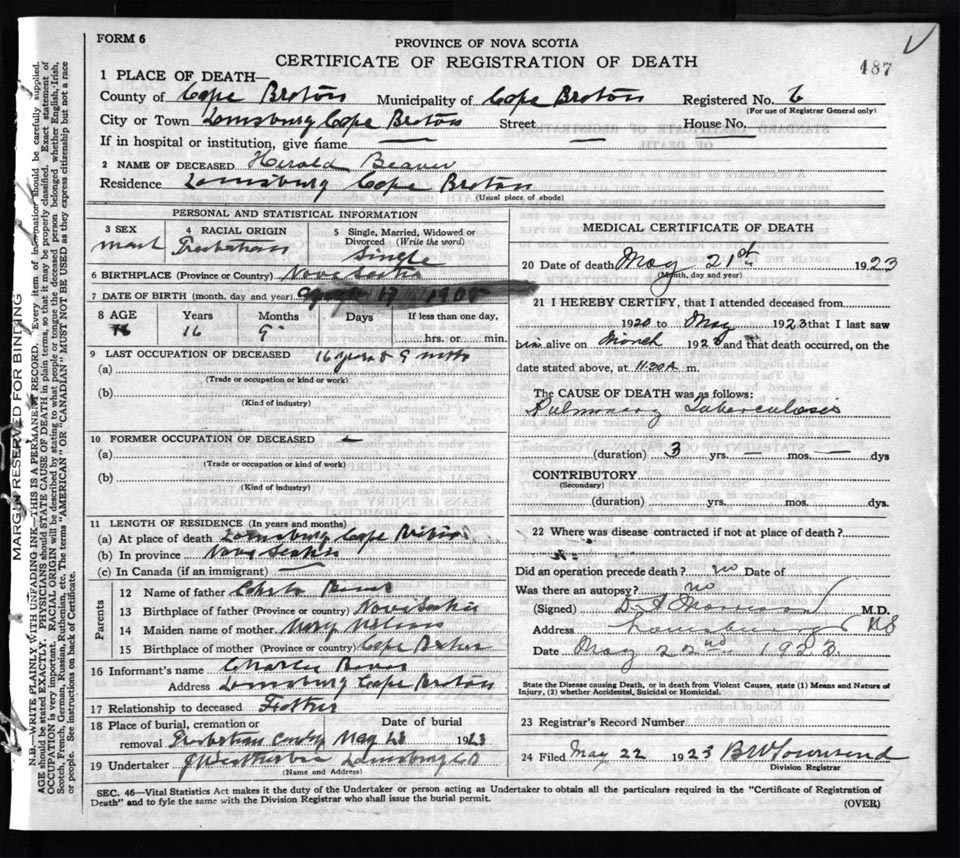 FORM 6
PROVINCE OF NOVA SCOTIA
CERTIFICATE OF REGISTRATION OF DEATH
487
1 PLACE OF DEATH—
County of Cape Breton Municipality of Cape Breton Registered No. 6
(For use of Registrar General only)
City or Town Louisburg Cape Breton Street — House No. —
If in hospital or institution, give name —
2 NAME OF DECEASED Herald Beaver
Residence Louisburg Cape Breton
(Usual place of abode)
PERSONAL AND STATISTICAL INFORMATION
3 SEX
4 RACIAL ORIGIN
5 Single, Married, Widowed or Divorced (Write the word)
Single
6 BIRTHPLACE (Province or Country) Nova Scotia
7 DATE OF BIRTH (month, day and year)
8 AGE Years Months Days If less than one day,
16 9
hrs. or min.
9 LAST OCCUPATION OF DECEASED 16 years & 9 mths
(a)
(Trade or occupation or kind or work)
(b)
(Kind of industry)
10 FORMER OCCUPATION OF DECEASED —
(a)
(Trade or occupation or kind or work)
(b)
(Kind of industry)
11 LENGTH OF RESIDENCE (In years and months)
(a) At place of death Louisburg Cape Breton
(b) In province Nova Scotia
(c) In Canada (if an immigrant) —
Parents
12 Name of father
13 Birthplace of father (Province or country) Nova Scotia
14 Maiden name of mother Mary
15 Birthplace of mother (Province or country) Cape Breton
16 Informant's name Charles
Address Louisburg Cape Breton
17 Relationship to deceased Father
18 Place of burial, cremation or removal Date of burial
May 23 1923
19 Undertaker Louisburg CB
(Name and Address)
MEDICAL CERTIFICATE OF DEATH
20 Date of death May 21st 1923
(Month, day and year)
21 I HEREBY CERTIFY, that I attended deceased from
1920 to May 1923 that I last saw
him alive on March 1923 and that death occurred, on the
date stated above, at 11.20 A. m.
The CAUSE OF DEATH was as follows:
Pulmonary Tuberculosis
(duration) 3 yrs. — mos. — dys
CONTRIBUTORY
(Secondary)
(duration) yrs. mos. dys.
22 Where was disease contracted if not at place of death?
Did an operation precede death? no Date of
Was there an autopsy? no
(Signed) M.D.
Address Louisburg NS
Date May 22nd 1923.
State the Disease causing Death, or in death from Violent Causes, state (1) Means and Nature of
Injury, (2) whether Accidental, Suicidal or Homicidal.
23 Registrar's Record Number
24 Filed May 22 1923 B W Townsend
Division Registrar
SEC. 46—Vital Statistics Act makes it the duty of the Undertaker or person acting as Undertaker to obtain all the particulars required in the "Certificate of Registration of
Death" and to fyle the same with the Division Registrar who shall issue the burial permit.
(OVER)
MARGIN RESERVED FOR BINDING
N.B.—WRITE PLAINLY WITH UNFADING INK—THIS IS A PERMANENT RECORD. Every item of information should be carefully supplied.
AGE should be stated EXACTLY. PHYSICIANS should STATE CAUSE OF DEATH in plain terms, so that it may be properly classified. Exact statement of
OCCUPATION is very important. RACIAL ORIGIN will be described by stating to what people or tongue the deceased person belonged whether English, Irish,
Scotch, French, German, Russian, Ruthenian, etc. The terms "AMERICAN" OR "CANADIAN" MUST NOT BE USED as they express citizenship but not a race
or people. See instructions on back of Certificate.